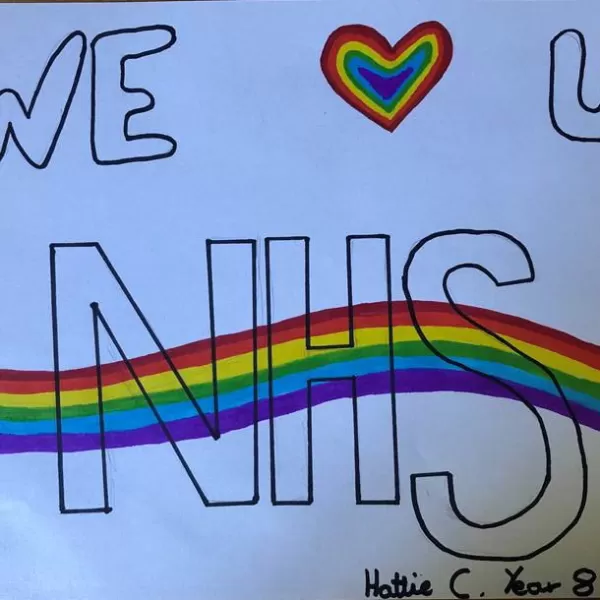 WE ❤ U
NHS
Hattie C. Year 8